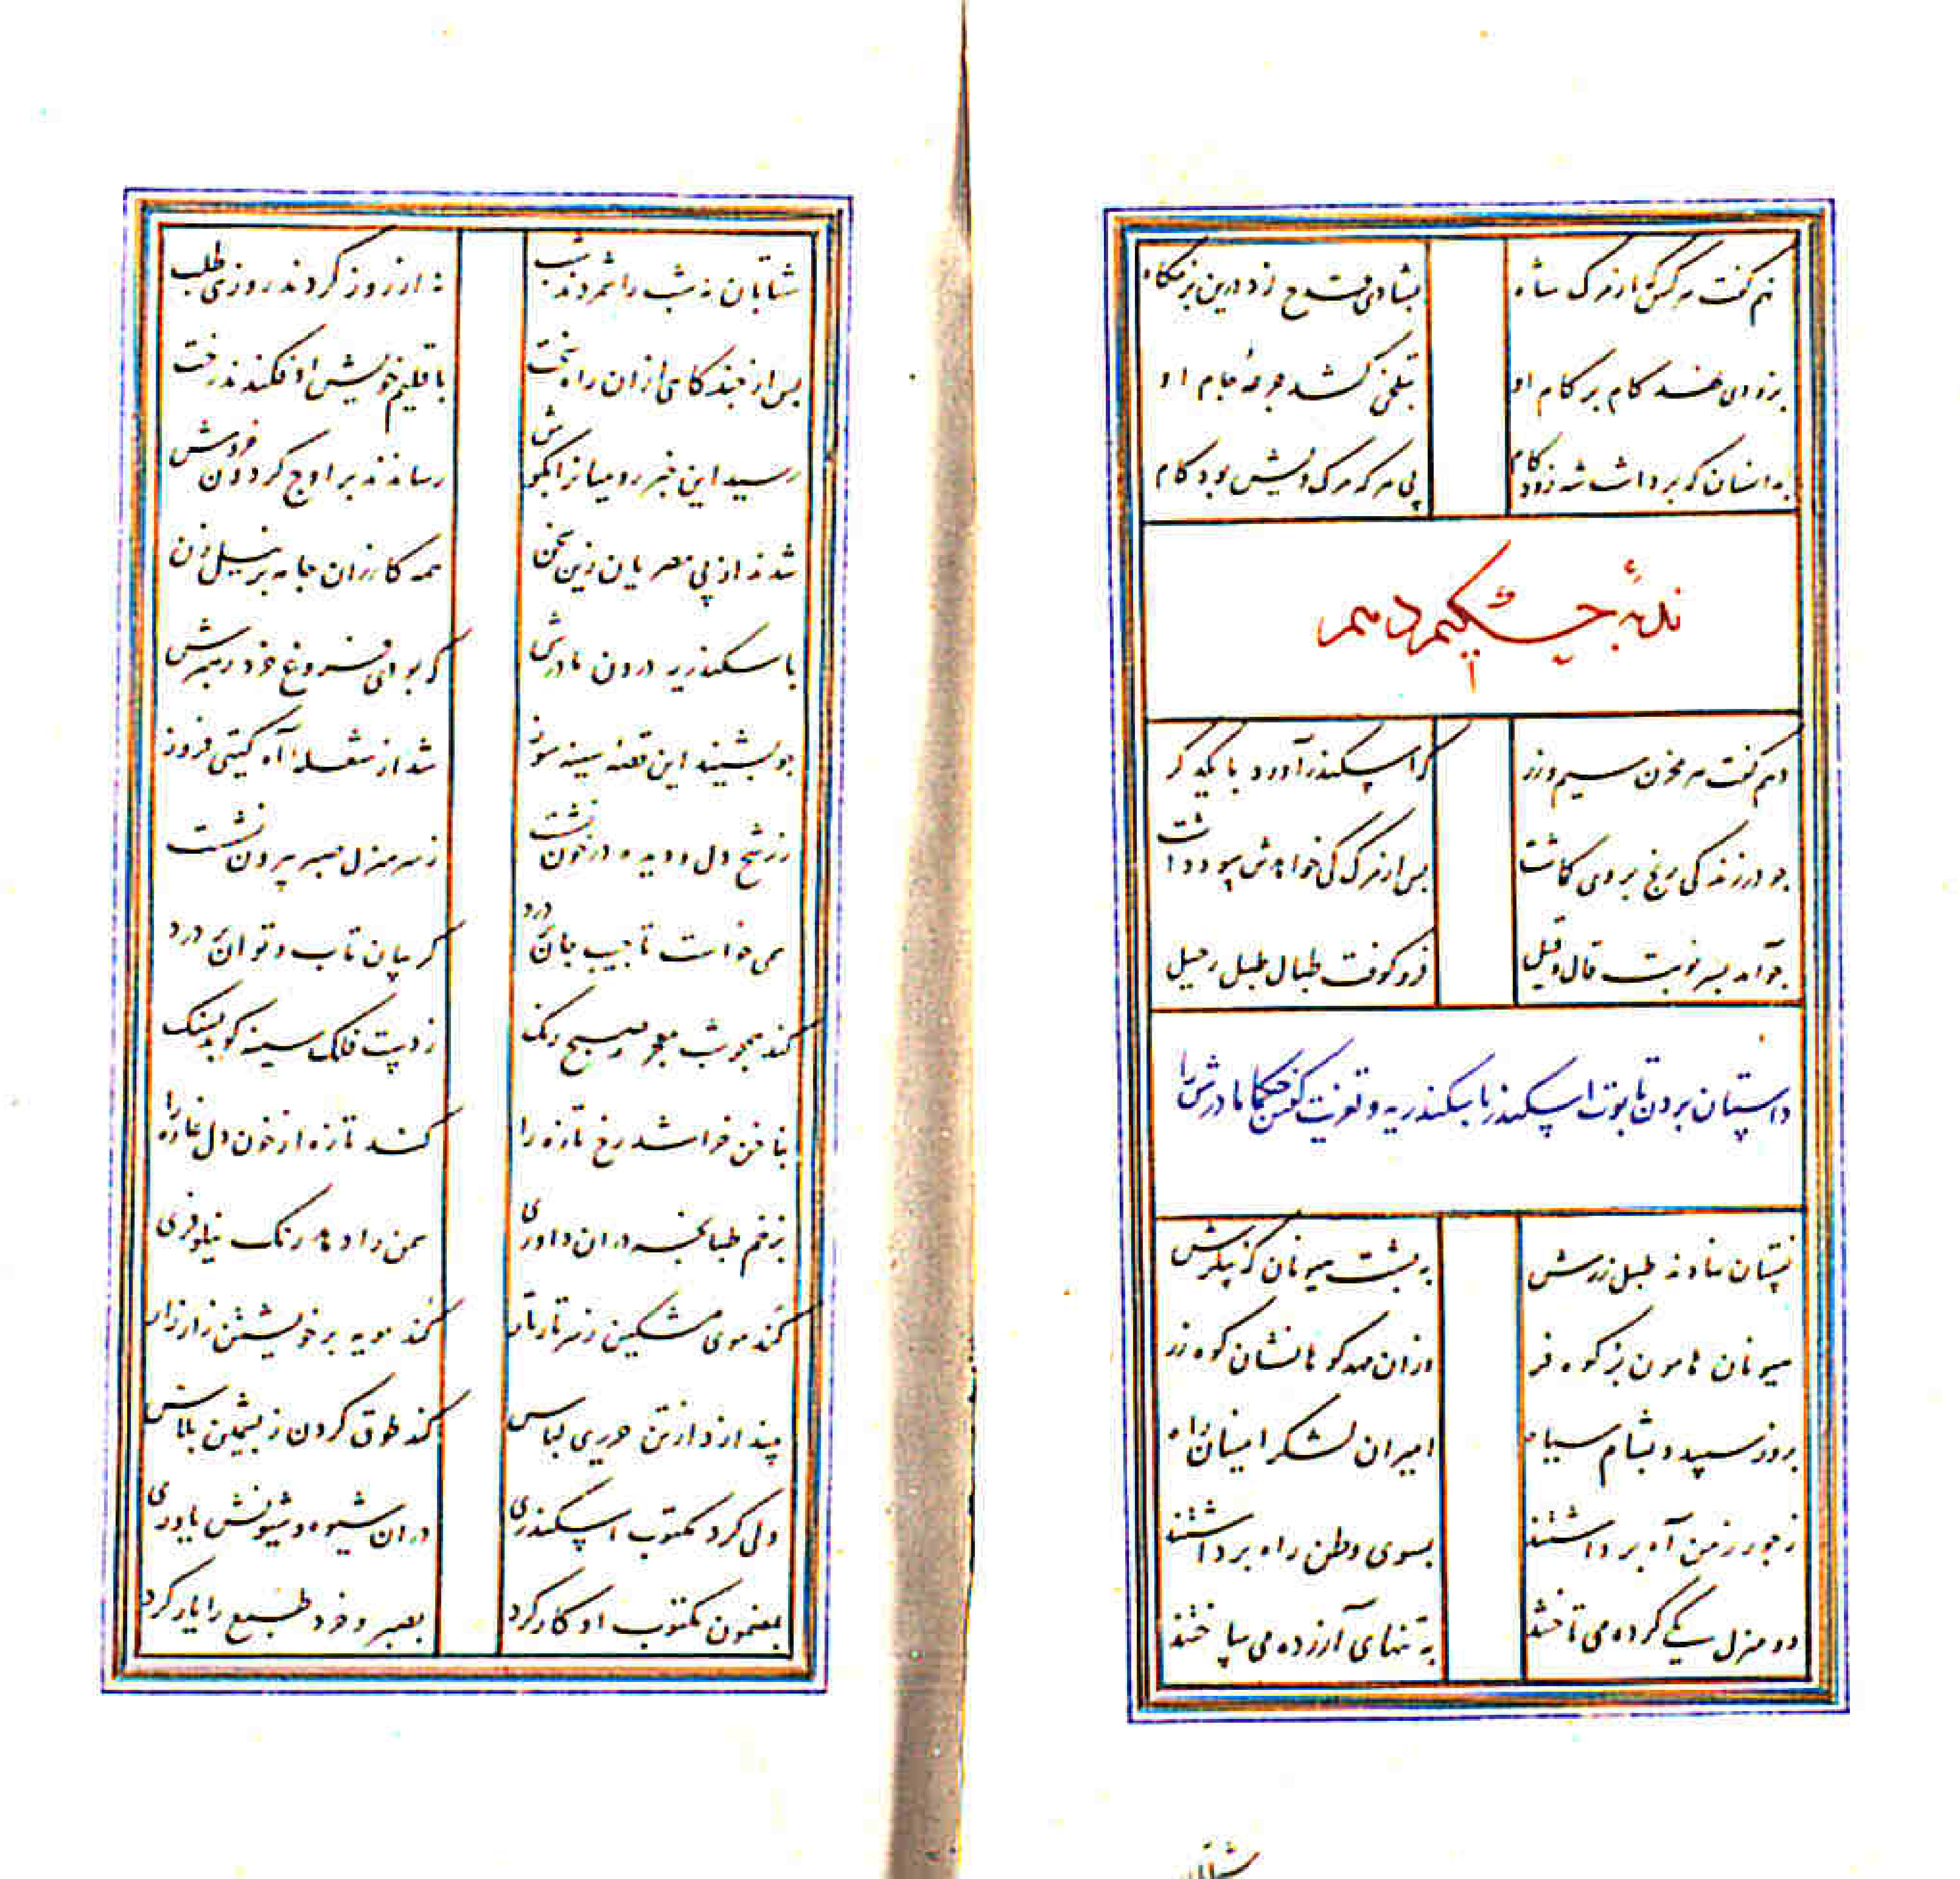 نهم گفت هر کس از مرگ شاه
بشادی قدح زد درین بزمگاه
بزودی نهند کام بر کام او
بتلخی کشد جرعهٔ جام او
بدانسان که برداشت شه زود کام
پی هر که مرگ ویش بود کام
ندبهٔ حکیم دهم
دهم گفت هر مخزن سیم و زر
که اسکندر آورد با یکدگر
جو در زندگی رنج بردی کماشت
پس از مرگ کی خواهدش سود داشت
جو آمد بسر نوبت قال و قیل
فرو کوفت طبال طبل رحیل
داستان بردن تابوت اسکندر باسکندریه و تعزیت گفتن حکما مادرش را
نهادند طبل زرش
به پشت هیونان که پیکرش
هیونان هامون بر کوه فر
وزان مهد کوهانشان کوه زر
بروز سپید و بشام سیاه
امیران لشکر امینان راه
ز جور زمن آه برداشتند
بسوی وطن راه برداشتند
دو منزل یکی کرده می تاختند
به تنهای آزرده می ساختند
شتابان
شتابان نه شب را شمردند شب
نه از روز کردند روزی طلب
پس از چند کاهی ازان راه سخت
باقلیم خویش اوفکندند رخت
رسید این خبر رومیانرا بگوش
رساندند بر اوج گردون خروش
شدند از پی مصریان زین سخن
همه کازران جامه بر نیل زن
باسکندریه درون مادرش
که بودی فروغ خرد رهبرش
جو بشنید این قصه سینه سوز
شد از شعله آه گیتی فروز
ز رشح دل و دیده در خون نشست
ز سر منزل صبر بیرون نشست
همی خواست تا جیب جان بر درد
گریبان تاب و توان بر درد
کند همجو شب معجر صبح رنگ
زدست فلک سینه کوبد بسنگ
بناخن خراشد رخ تازه را
کند تازه از خون دل غازه را
بزخم طبانجه دران داوری
سمن را دهد رنگ نیلوفری
کند موی مشکین ز سر تار تار
کند مویه بر خویشتن زار زار
بیندازد از تن حریری لباس
کند طوق گردن ز پشمین پلاس
ولی کرد مکتوب اسکندری
دران شیوه و شیونش یاوری
بمضمون مکتوب او کار کرد
بصبر و خرد طبع را یار کرد